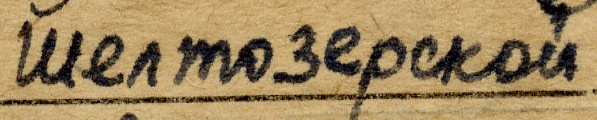 Шелтозерской